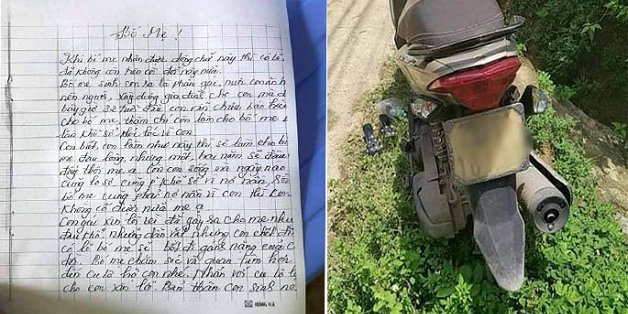 Bố Mẹ!
Khi bố mẹ nhận được dòng chữ này thì có lẽ
đã không còn trên cõi đời này nữa.
Bố mẹ sinh con ra là phận gái, nuôi con ăn h
nên người, xây dựng gia đình cho con mà
bây giờ 32 tuổi đầu con vẫn chưa báo hiếu
cho bố mẹ, thậm chí còn làm cho bố mẹ
khổ sở
Con biết, con làm như này thì sẽ làm cho bố
mẹ đau lòng, nhưng một, hai năm sẽ
mẹ ạ. Con còn sống và ngày nào
cũng khổ vì nó nần,
bố mẹ cũng phải nó nần vì con thì con
Không có được nữa mẹ ạ
Con xin lỗi vì đã gây ra cho mẹ
đau khổ nhưng nhưng con chết đi
có lẽ bố mẹ sẽ bớt đi gánh nặng cuộc
đời. Bố mẹ chăm sóc và quan tâm hơn
đến cu tớ hộ con nhé. Nhắn với cu
cho con xin lỗi. Bản thân con sinh ra
HỒNG HÀ